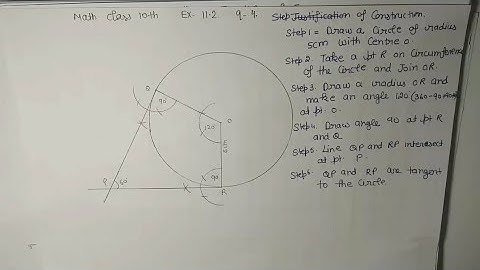 Math Class 10th Ex- 11.2 Q-4.
Step Justification of Construction.
Step 1 = Draw a Circle of radius
5cm with Centre O
Step 2. Take a pt R on Circumference
of the Circle and Join OR.
Step 3. Draw a radius OR and
make an angle 120
at pt. O.
Step 4. Draw angle 90 at pt R
and Q
Step 5. Line QP and RP intersect
at pt. P.
Step 5. QP and RP are tangent
to the Circle
Q
90
O
120
P
60
90
R